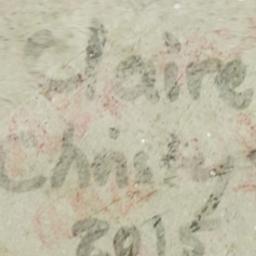 Claire
Christy
2015